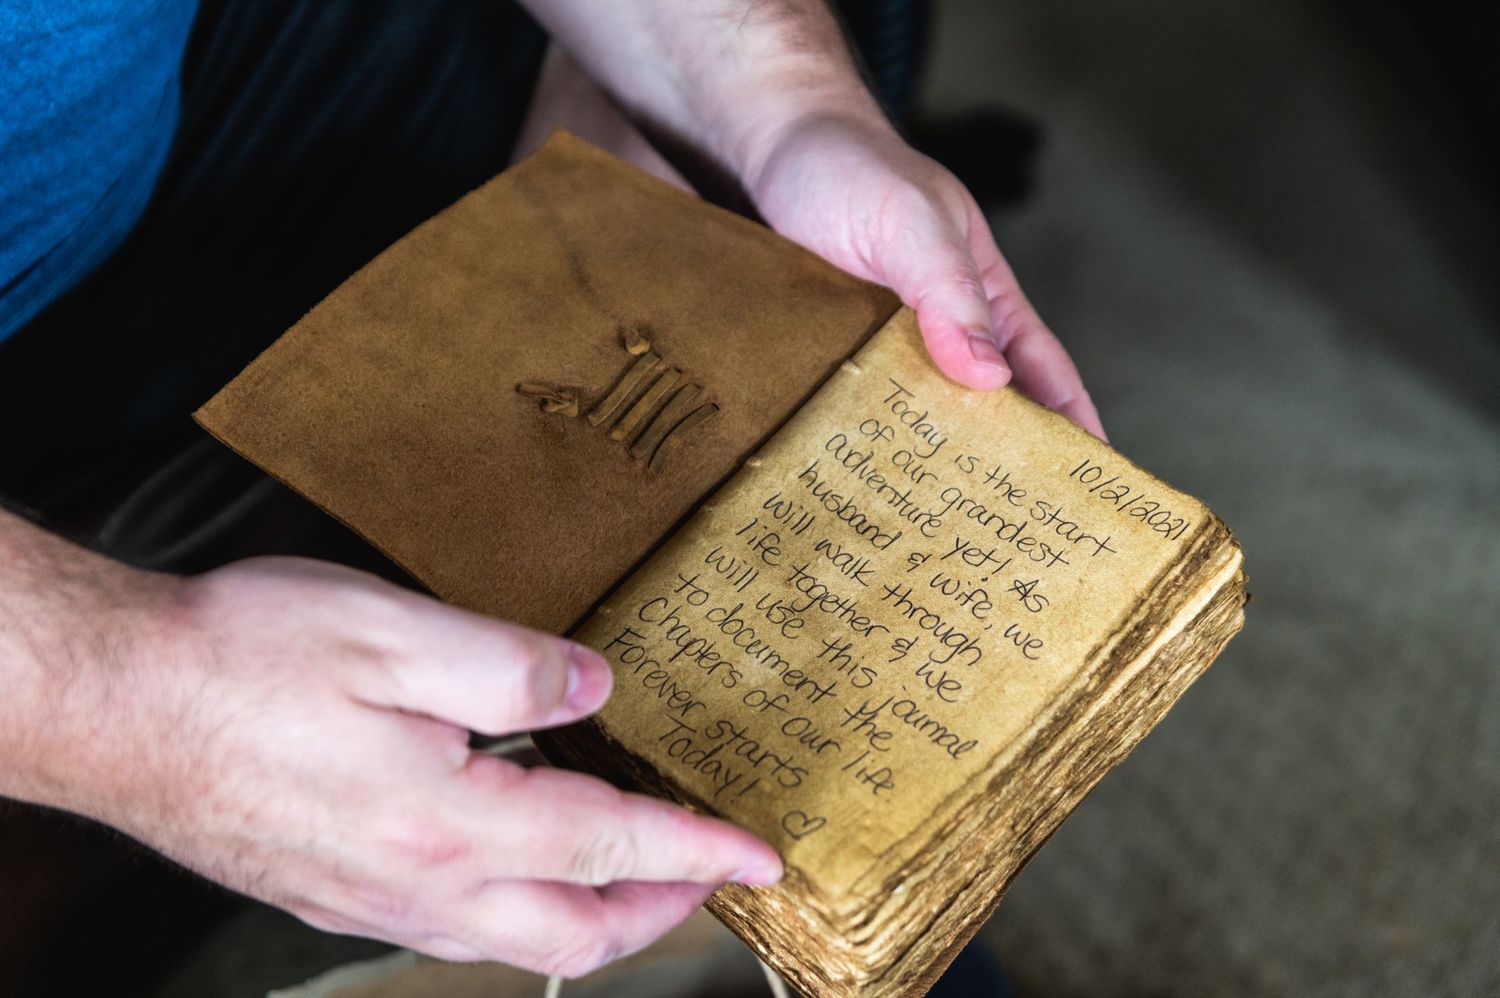 10/2/2021
Today is the start
of our grandest
adventure yet! As
husband & wife, we
will walk through
life together & we
will use this journal
to document the
Chapters of our life.
Forever starts
Today!